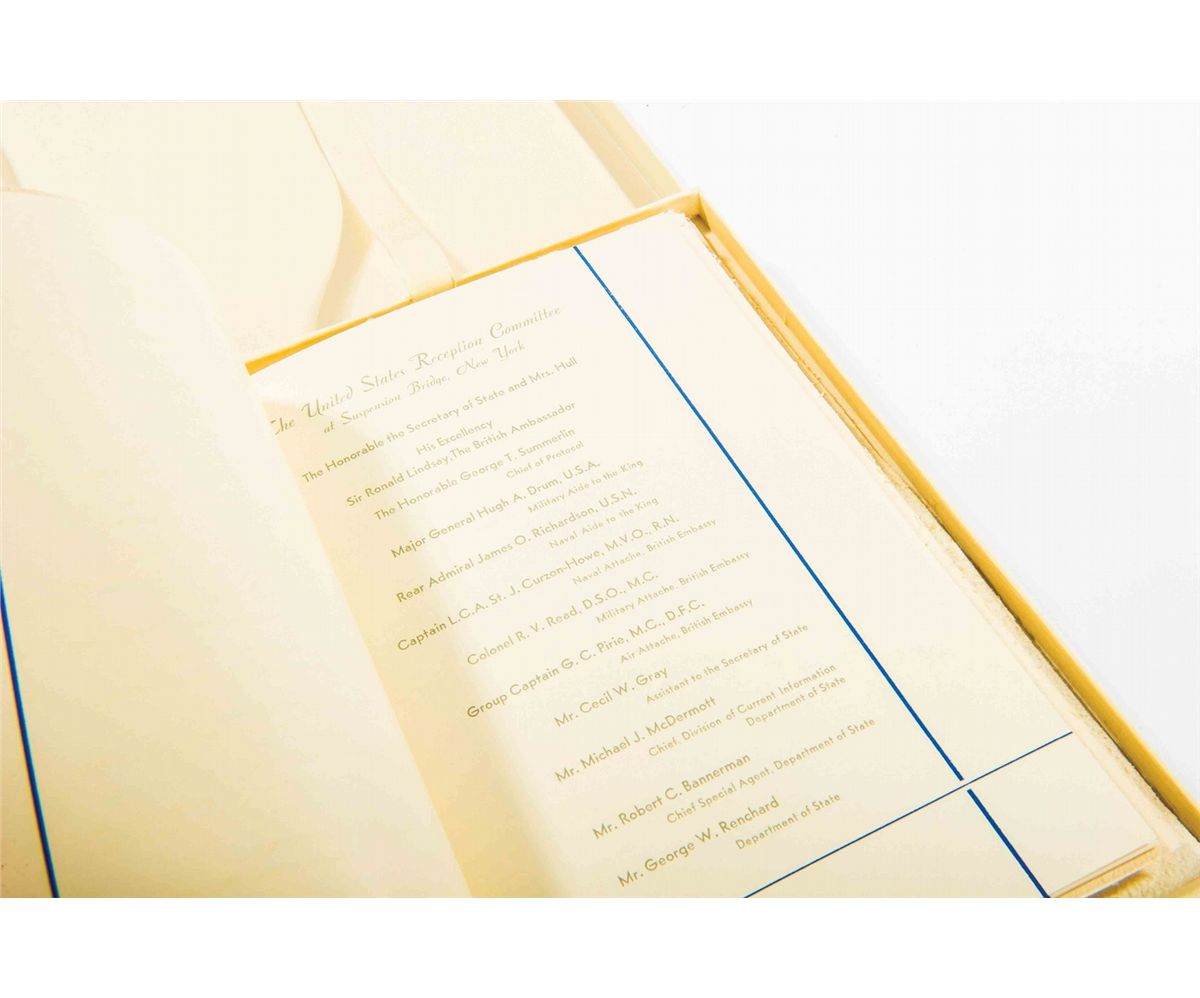 The United States Reception Committee
at Suspension Bridge, New York
The Honorable the Secretary of State and Mrs. Hull
His Excellency
Sir Ronald Lindsay, The British Ambassador
The Honorable George T. Summerlin
Chief of Protocol
Major General Hugh A. Drum, U.S.A.
Military Aide to the King
Rear Admiral James O. Richardson, U.S.N.
Naval Aide to the King
Captain L.C.A. St. J. Curzon-Howe, M.V.O., R.N.
Naval Attache, British Embassy
Colonel R. V. Read, D.S.O., M.C.
Military Attache, British Embassy
Group Captain G. C. Pirie, M.C., D.F.C.
Air Attache, British Embassy
Mr. Cecil W. Gray
Assistant to the Secretary of State
Mr. Michael J. McDermott
Chief, Division of Current Information
Department of State
Mr. Robert C. Bannerman
Chief Special Agent, Department of State
Mr. George W. Renchard
Department of State